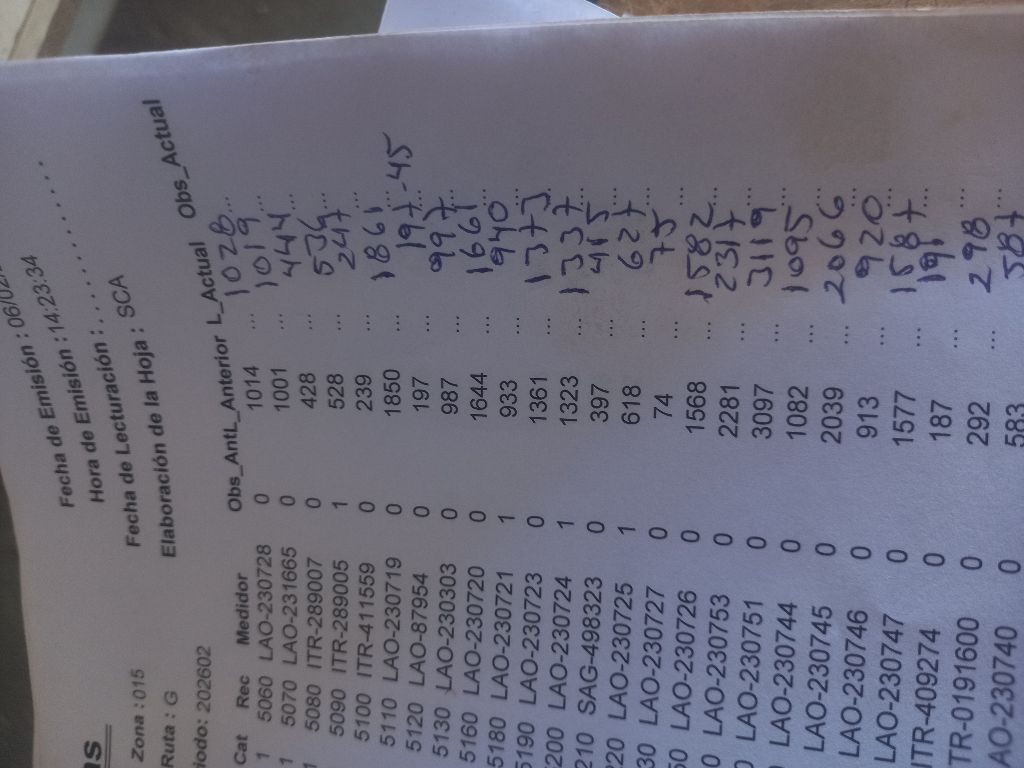 Fecha de Emisión : 06/02
Hora de Emisión : 14:23:34
Fecha de Lecturación : . . . . . . . . . .
Zona : 015 Elaboración de la Hoja : SCA
Ruta : G
iodo: 202602
Cat Rec Medidor Obs_AntL_Anterior L_Actual Obs_Actual
1 5060 LAO-230728 0 1014 ... 1028 ...
1 5070 LAO-231665 0 1001 ... 1019 ...
1 5080 ITR-289007 0 428 ... 444 ...
5090 ITR-289005 1 528 ... 536 ...
5100 ITR-411559 0 239 ... 247 ...
5110 LAO-230719 0 1850 ... 1861 ...
5120 LAO-87954 0 197 ... 197 -45 ...
5130 LAO-230303 0 987 ... 997 ...
5160 LAO-230720 0 1644 ... 1661 ...
5180 LAO-230721 1 933 ... 940 ...
5190 LAO-230723 0 1361 ... 1373 ...
5200 LAO-230724 1 1323 ... 1337 ...
210 SAG-498323 0 397 ... 415 ...
20 LAO-230725 1 618 ... 627 ...
30 LAO-230727 0 74 ... 75 ...
50 LAO-230726 0 1568 ... 1582 ...
0 LAO-230753 0 2281 ... 2317 ...
LAO-230751 0 3097 ... 3119 ...
LAO-230744 0 1082 ... 1095 ...
LAO-230745 0 2039 ... 2066 ...
LAO-230746 0 913 ... 920 ...
LAO-230747 0 1577 ... 1587 ...
ITR-409274 0 187 ... 191 ...
TR-0191600 0 292 ... 298 ...
AO-230740 0 583 ... 587 ...